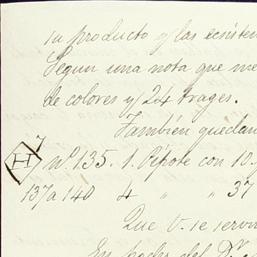 su producto y las existen
Segun una nota que me
de colores y 24 trages.
Tambien quedan
7
H nº 135. 1. Pipote con 10.
137 a 140 4 " " 37
Que V. se servi
En poder del Dr.